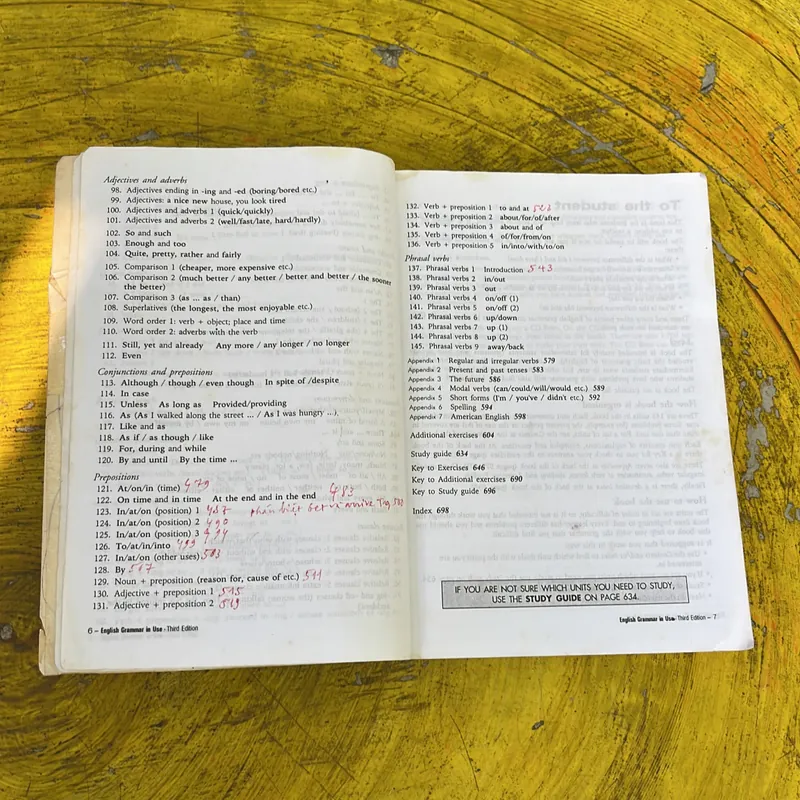 Adjectives and adverbs
98. Adjectives ending in -ing and -ed (boring/bored etc.)
99. Adjectives: a nice new house, you look tired
100. Adjectives and adverbs 1 (quick/quickly)
101. Adjectives and adverbs 2 (well/fast/late, hard/hardly)
102. So and such
103. Enough and too
104. Quite, pretty, rather and fairly
105. Comparison 1 (cheaper, more expensive etc.)
106. Comparison 2 (much better / any better / better and better / the sooner
the better)
107. Comparison 3 (as ... as / than)
108. Superlatives (the longest, the most enjoyable etc.)
109. Word order 1: verb + object; place and time
110. Word order 2: adverbs with the verb
111. Still, yet and already Any more / any longer / no longer
112. Even
Conjunctions and prepositions
113. Although / though / even though In spite of /despite
114. In case
115. Unless As long as Provided/providing
116. As (As I walked along the street ... / As I was hungry ...)
117. Like and as
118. As if / as though / like
119. For, during and while
120. By and until By the time ...
Prepositions
121. At/on/in (time) 479
122. On time and in time At the end and in the end 483
123. In/at/on (position) 1 487 phân biệt get và arrive
124. In/at/on (position) 2 490
125. In/at/on (position) 3
126. To/at/in/into 499
127. In/at/on (other uses) 503
128. By 507
129. Noun + preposition (reason for, cause of etc.) 511
130. Adjective + preposition 1 515
131. Adjective + preposition 2 519
6 – English Grammar in Use - Third Edition
132. Verb + preposition 1 to and at
133. Verb + preposition 2 about/for/of/after
134. Verb + preposition 3 about and of
135. Verb + preposition 4 of/for/from/on
136. Verb + preposition 5 in/into/with/to/on
Phrasal verbs
137. Phrasal verbs 1 Introduction 543
138. Phrasal verbs 2 in/out
139. Phrasal verbs 3 out
140. Phrasal verbs 4 on/off (1)
141. Phrasal verbs 5 on/off (2)
142. Phrasal verbs 6 up/down
143. Phrasal verbs 7 up (1)
144. Phrasal verbs 8 up (2)
145. Phrasal verbs 9 away/back
Appendix 1 Regular and irregular verbs 579
Appendix 2 Present and past tenses 583
Appendix 3 The future 586
Appendix 4 Modal verbs (can/could/will/would etc.) 589
Appendix 5 Short forms (I'm / you've / didn't etc.) 592
Appendix 6 Spelling 594
Appendix 7 American English 598
Additional exercises 604
Study guide 634
Key to Exercises 646
Key to Additional exercises 690
Key to Study guide 696
Index 698
IF YOU ARE NOT SURE WHICH UNITS YOU NEED TO STUDY,
USE THE STUDY GUIDE ON PAGE 634.
English Grammar in Use - Third Edition – 7